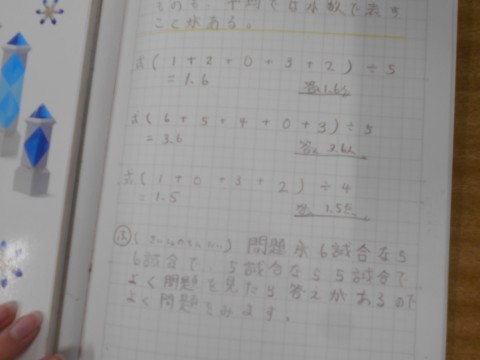 ものも、平均では小数で表す
ことがある。
式(1+2+0+3+2)÷5
=1.6
答え1.6
式(6+5+4+0+3)÷5
=3.6
答え3.6
式(1+0+3+2)÷4
=1.5
答え1.5
問題が6試合なら
6試合で 5試合なら5試合で
よく問題を見たら答えがあるので
よく問題をみます。